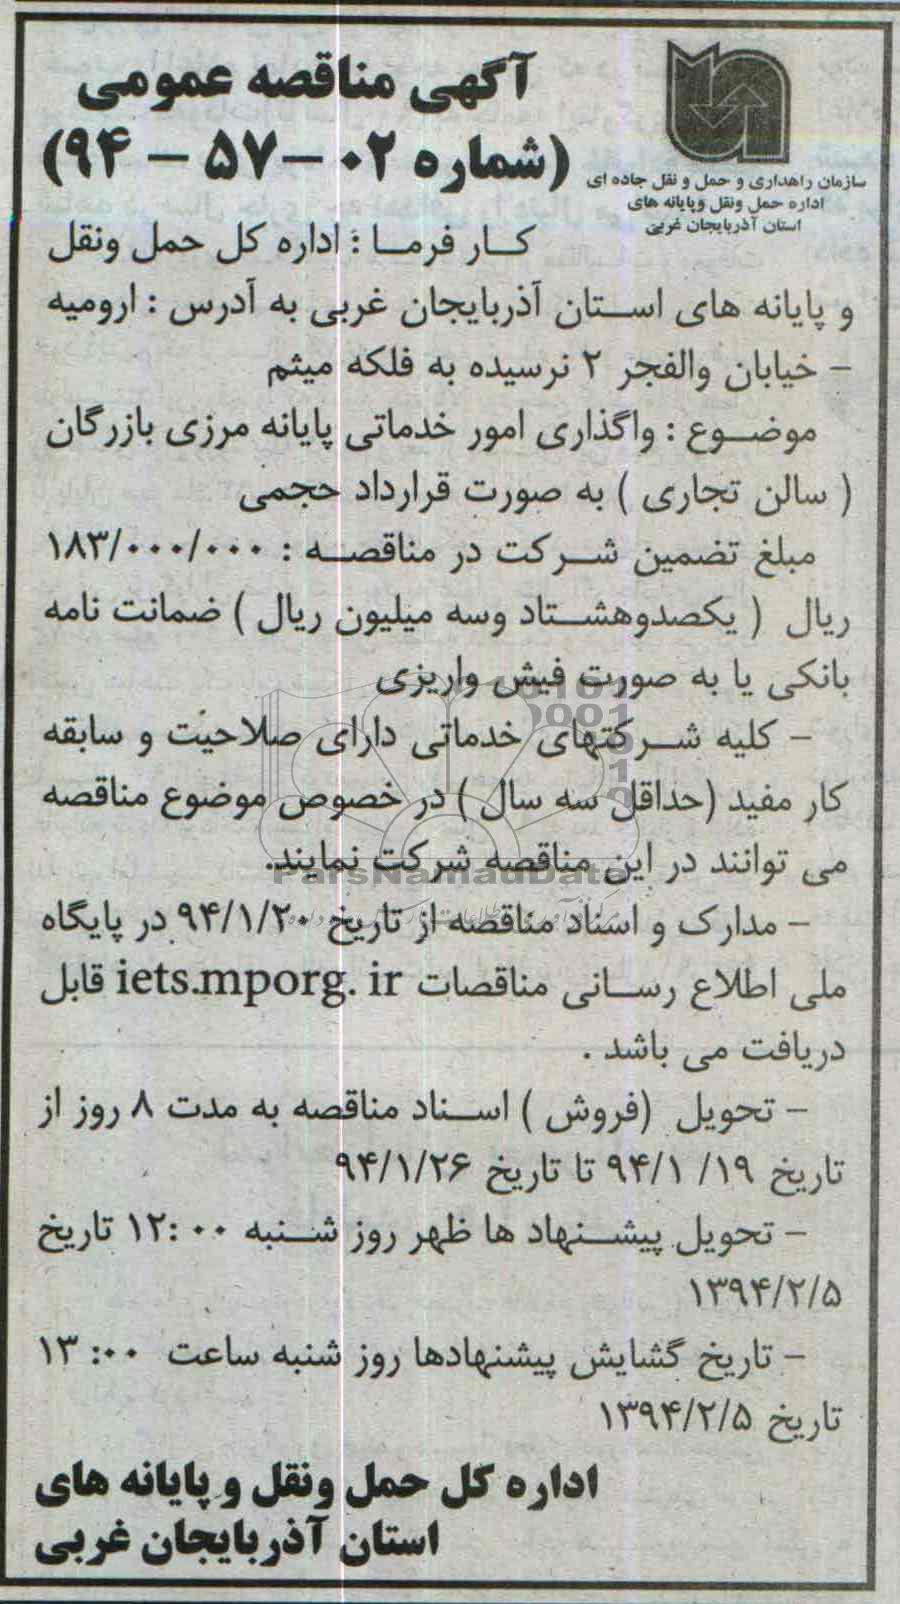 آگهی مناقصه عمومی
(شماره ۰۲ – ۵۷ – ۹۴)
سازمان راهداری و حمل و نقل جاده ای
اداره حمل ونقل وپایانه های
استان آذربایجان غربی
کار فرما : اداره کل حمل ونقل
و پایانه های استان آذربایجان غربی به آدرس : ارومیه
– خیابان والفجر ۲ نرسیده به فلکه میثم
موضوع : واگذاری امور خدماتی پایانه مرزی بازرگان
( سالن تجاری ) به صورت قرارداد حجمی
مبلغ تضمین شرکت در مناقصه : ۱۸۳/۰۰۰/۰۰۰
ریال ( یکصدوهشتاد وسه میلیون ریال ) ضمانت نامه
بانکی یا به صورت فیش واریزی
– کلیه شرکتهای خدماتی دارای صلاحیت و سابقه
کار مفید (حداقل سه سال ) در خصوص موضوع مناقصه
می توانند در این مناقصه شرکت نمایند.
ParsNamadData
– مدارک و اسناد مناقصه از تاریخ ۹۴/۱/۲۰ در پایگاه
ملی اطلاع رسانی مناقصات iets.mporg. ir قابل
دریافت می باشد .
– تحویل (فروش ) اسناد مناقصه به مدت ۸ روز از
تاریخ ۱۹/ ۹۴/۱ تا تاریخ ۹۴/۱/۲۶
– تحویل پیشنهاد ها ظهر روز شنبه ۱۲:۰۰ تاریخ
۱۳۹۴/۲/۵
– تاریخ گشایش پیشنهادها روز شنبه ساعت ۱۳:۰۰
تاریخ ۱۳۹۴/۲/۵
اداره کل حمل ونقل و پایانه های
استان آذربایجان غربی